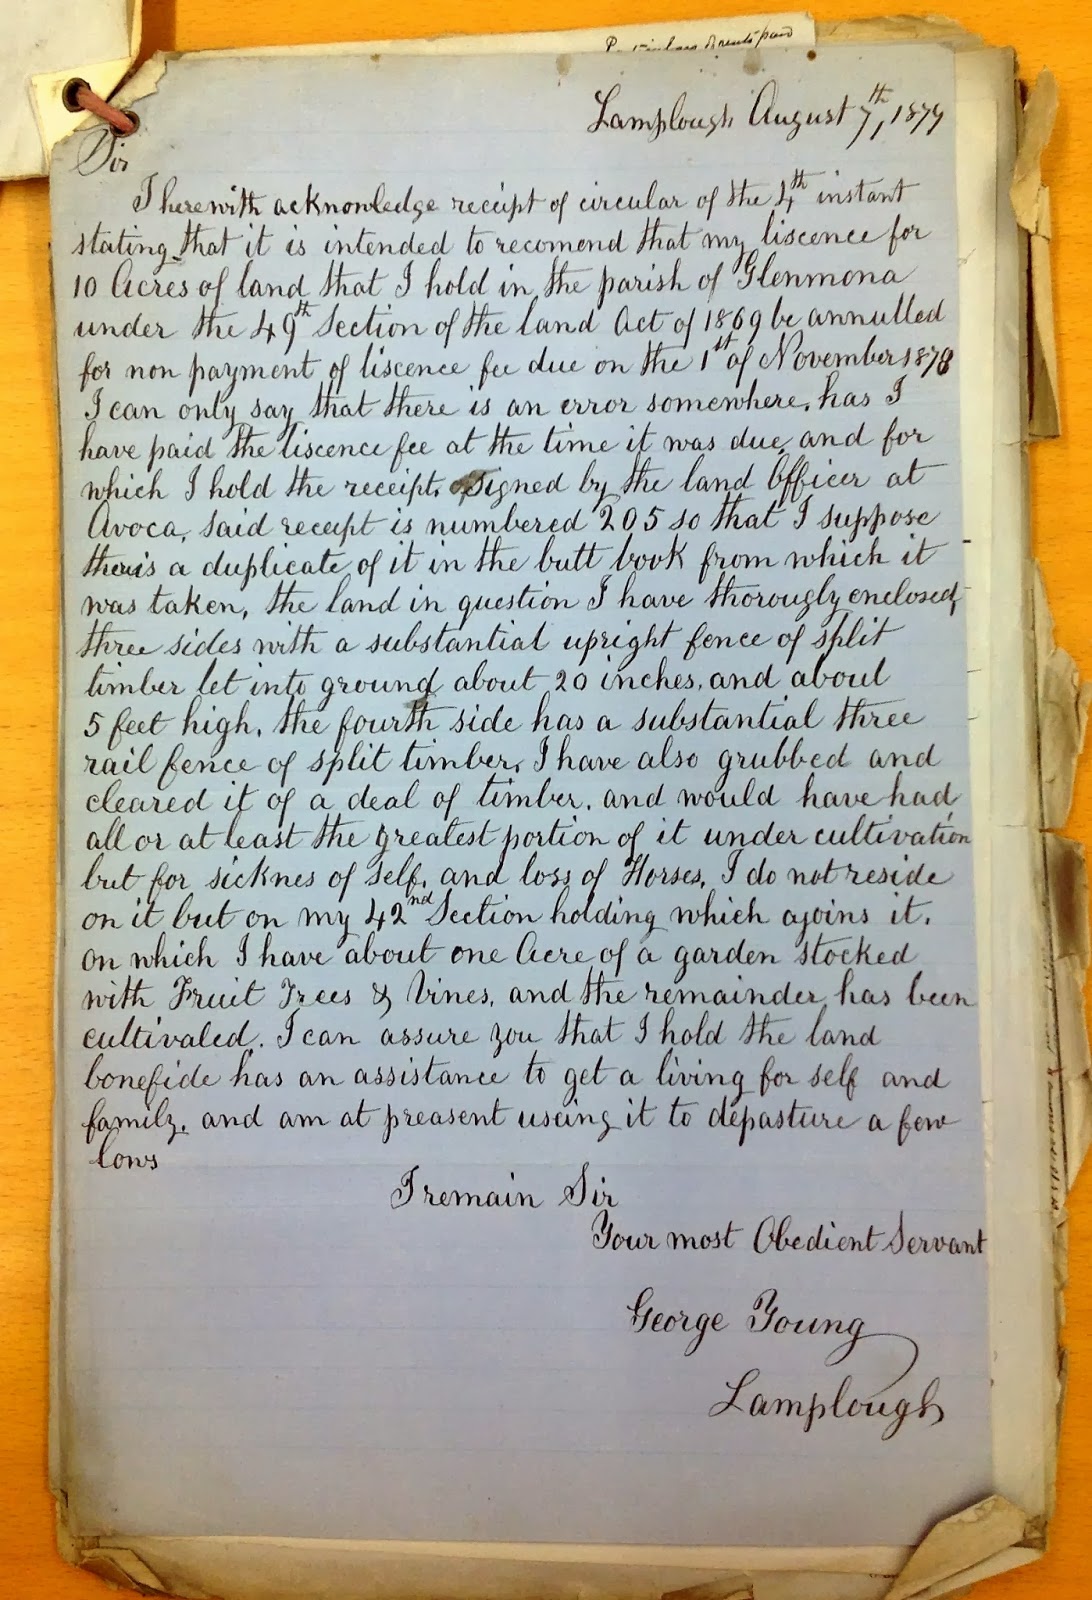 Lamplough August 7th, 1879
Sir
I herewith acknowledge receipt of circular of the 4th instant
stating that it is intended to recomend that my liscence for
10 Acres of land that I hold in the parish of Glenmona
under the 49th Section of the land Act of 1869 be annulled
for non payment of liscence fee due on the 1st of November 1878
I can only say that there is an error somewhere, has I
have paid the liscence fee at the time it was due, and for
which I hold the receipt, signed by the land Officer at
Avoca, said receipt is numbered 205 so that I suppose
a duplicate of it in the butt book from which it
was taken, the land in question I have thorougly enclosed,
three sides with a substantial upright fence of split
timber let into ground about 20 inches, and about
5 feet high, the fourth side has a substantial three
rail fence of split timber, I have also grubbed and
cleared it of a deal of timber, and would have had
all or at least the greatest portion of it under cultivation
but for sicknes of self, and loss of Horses, I do not reside
on it but on my 42nd Section holding which ajoins it,
on which I have about one Acre of a garden stocked
with Fruit Trees & Vines, and the remainder has been
cultivaled. I can assure you that I hold the land
bonefide has an assistance to get a living for self and
family, and am at preasent useing it to depasture a few
Cows
I remain Sir
Your most Obedient Servant
George Young
Lamplough